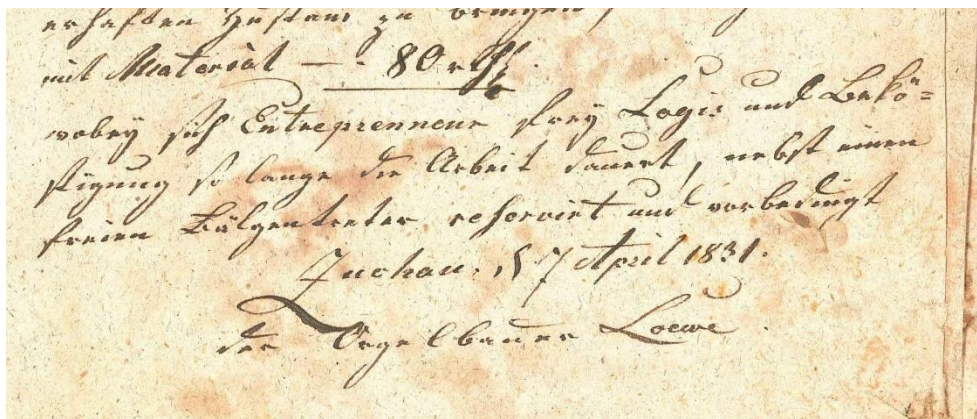 erhaften Zustand zu bringen,
mit Material — - 80 rth
wobey sich Entreprenneur frey Logis und Bekö=
stigung so lange die Arbeit dauert, nebst einen
freien Bälgentreter reservirt und vorbedingt
Zuchau. d 7 April 1831.
der Orgelbauer Loewe.